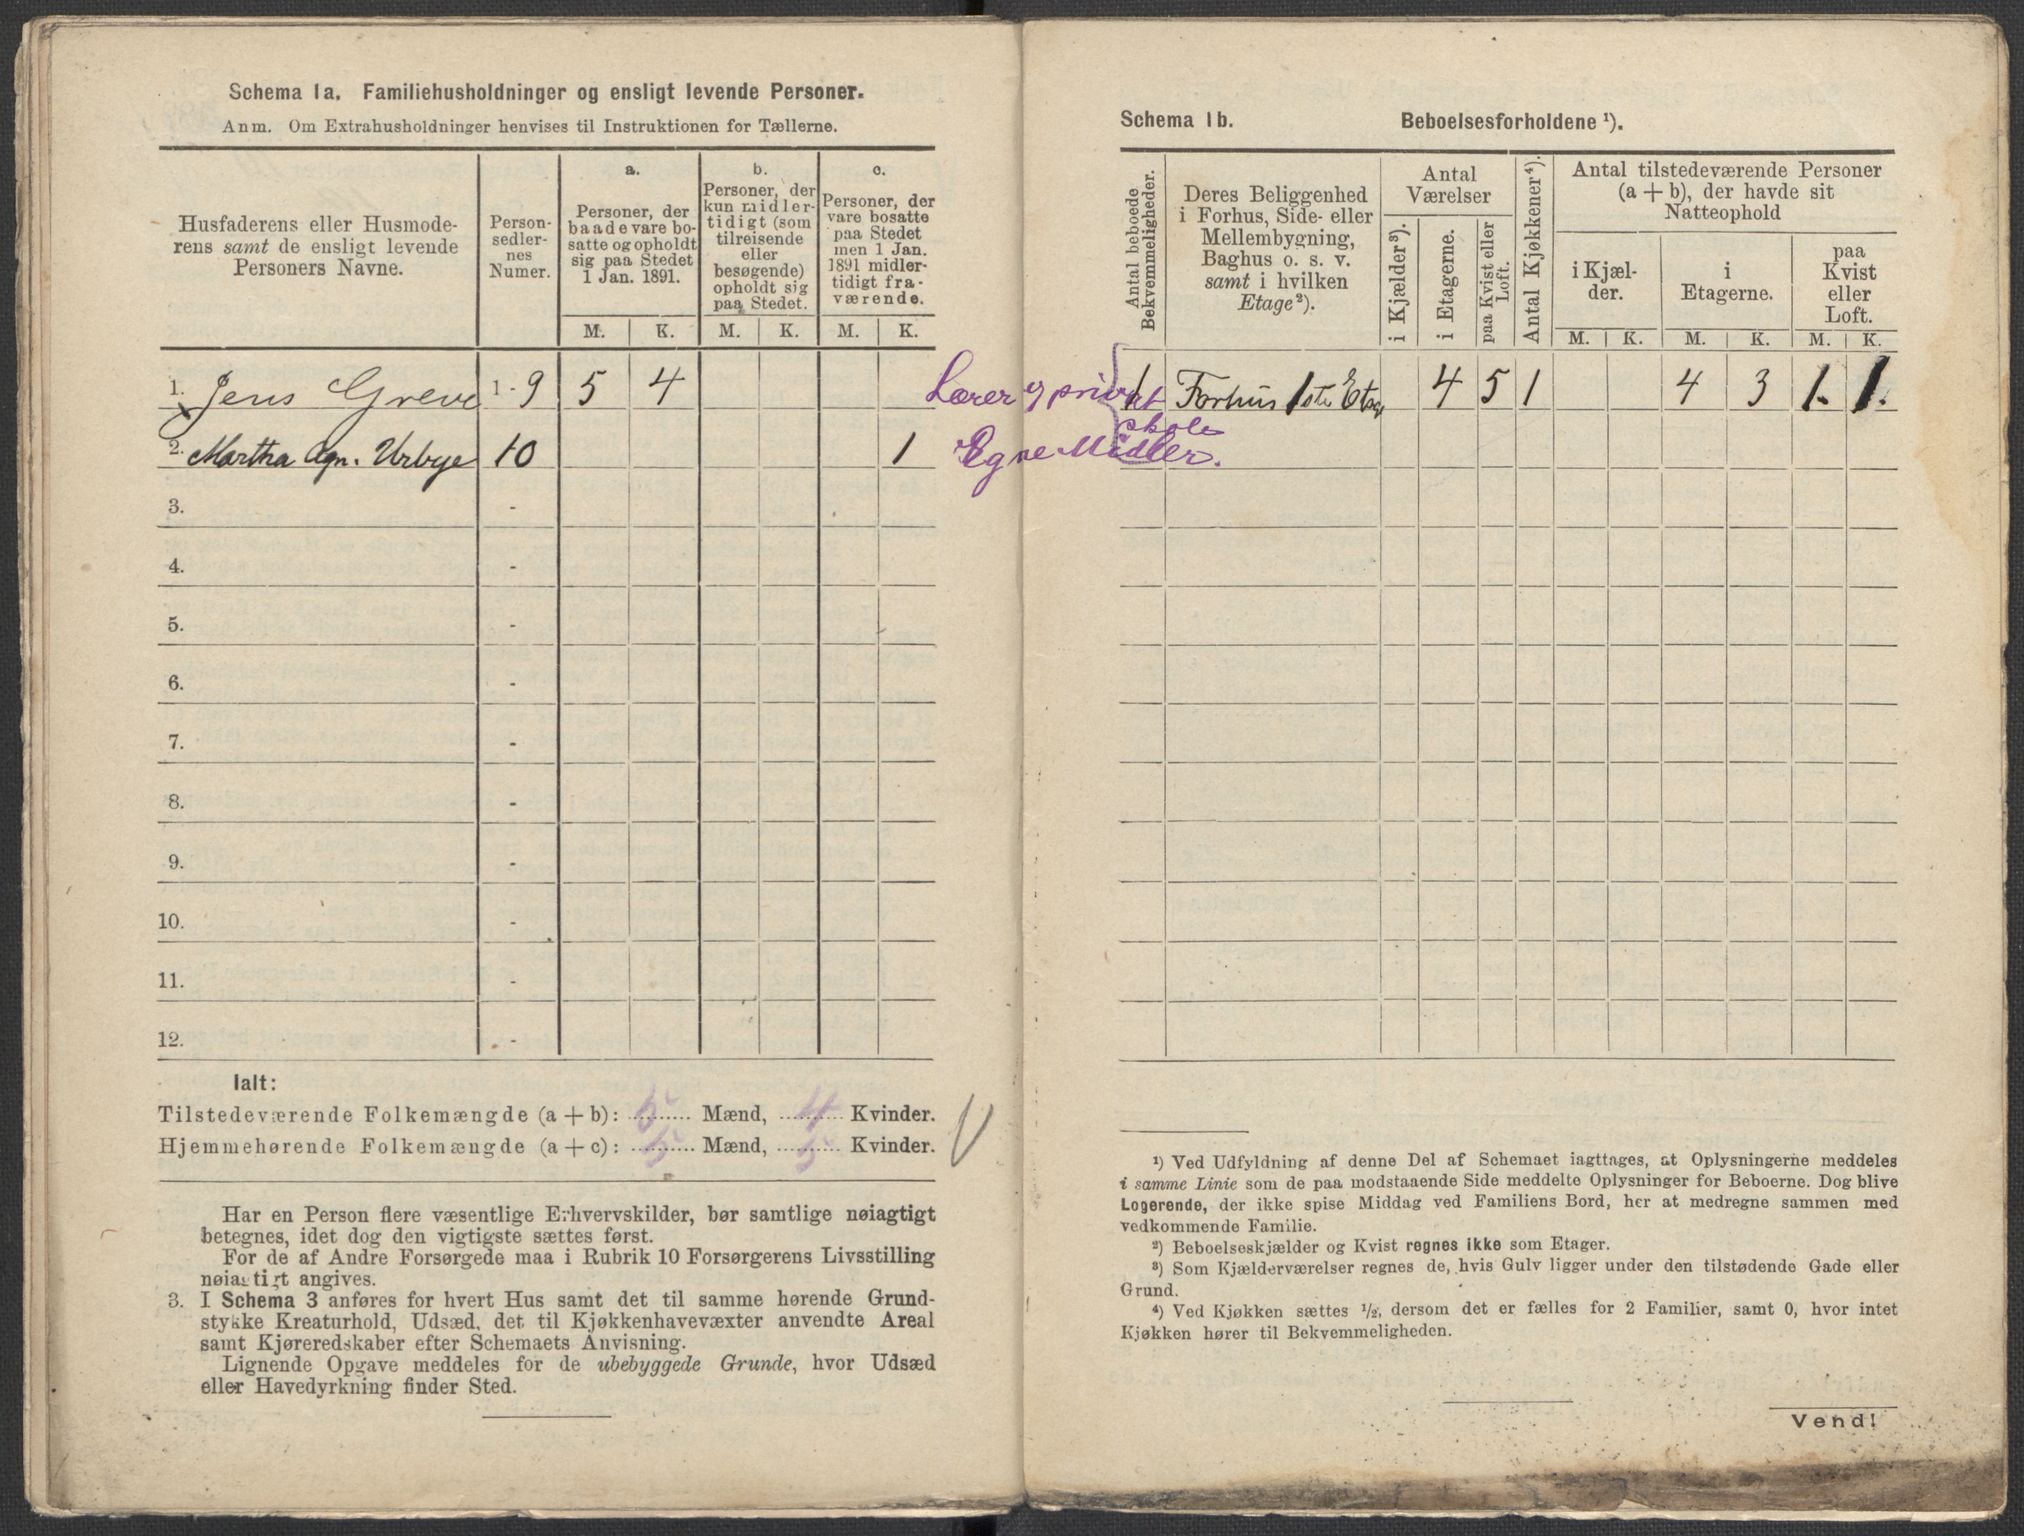 Schema 1a. Familiehusholdninger og ensligt levende Personer.
Anm. Om Extrahusholdninger henvises til Instruktionen for Tællerne.
Husfaderens eller Husmode-
rens samt de ensligt levende
Personers Navne.
Person-
sedler-
nes
Numer.
a.
Personer, der
baade vare bo-
satte og opholdt
sig paa Stedet
1 Jan. 1891.
b.
Personer, der
kun midler-
tidigt (som
tilreisende
eller
besøgende)
opholdt sig
paa Stedet.
c.
Personer, der
vare bosatte
paa Stedet
men 1 Jan.
1891 midler-
tidigt fra-
værende.
M. K. M. K. M. K.
1. Jens Greve 1 - 9 5 4
2. Martha Agn. Urbye 10 1
3. -
4. -
5. -
6. -
7. -
8. -
9. -
10. -
11. -
12. -
Ialt:
Tilstedeværende Folkemængde (a + b): 5 Mænd, 4 Kvinder.
Hjemmehørende Folkemængde (a + c): 5 Mænd, 5 Kvinder.
Har en Person flere væsentlige Erhvervskilder, bør samtlige nøiagtigt
betegnes, idet dog den vigtigste sættes først.
For de af Andre Forsørgede maa i Rubrik 10 Forsørgerens Livsstilling
nøiagtigt angives.
3. I Schema 3 anføres for hvert Hus samt det til samme hørende Grund-
stykke Kreaturhold, Udsæd, det til Kjøkkenhavevæxter anvendte Areal
samt Kjøreredskaber efter Schemaets Anvisning.
Lignende Opgave meddeles for de ubebyggede Grunde, hvor Udsæd
eller Havedyrkning finder Sted.
Schema 1b. Beboelsesforholdene ¹).
Antal beboede
Bekvemmeligheder.
Deres Beliggenhed
i Forhus, Side- eller
Mellembygning,
Baghus o. s. v.
samt i hvilken
Etage ²).
Antal
Værelser
i Kjælder ³).
i Etagerne.
paa Kvist eller
Loft.
Antal Kjøkkener ⁴).
Antal tilstedeværende Personer
(a + b), der havde sit
Natteophold
i Kjæl-
der.
i
Etagerne.
paa
Kvist
eller
Loft.
M. K. M. K. M. K.
Lærer v privat
skole
1 Forhus 1ste Etage 4 5 1 4 3 1. 1.
Egne Midler.
¹) Ved Udfyldning af denne Del af Schemaet iagttages, at Oplysningerne meddeles
i samme Linie som de paa modstaaende Side meddelte Oplysninger for Beboerne. Dog blive
Logerende, der ikke spise Middag ved Familiens Bord, her at medregne sammen med
vedkommende Familie.
²) Beboelseskjælder og Kvist regnes ikke som Etager.
³) Som Kjælderværelser regnes de, hvis Gulv ligger under den tilstødende Gade eller
Grund.
⁴) Ved Kjøkken sættes ½, dersom det er fælles for 2 Familier, samt 0, hvor intet
Kjøkken hører til Bekvemmeligheden.
Vend!